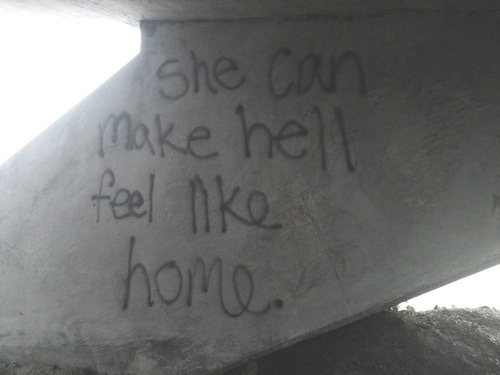 she can
make hell
feel like
home.